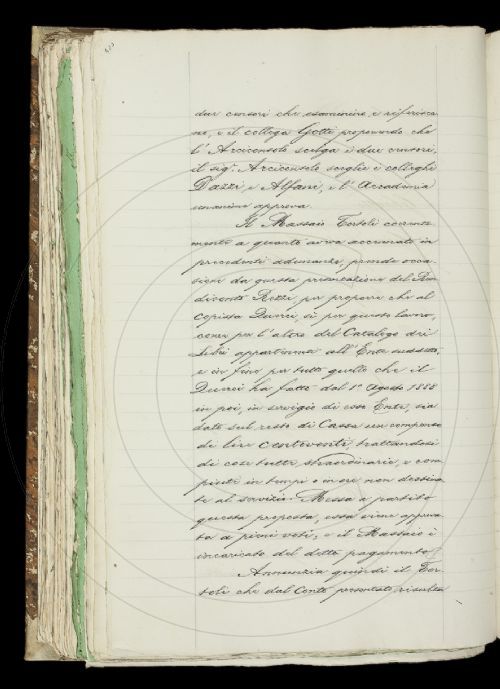 due censori che esaminino, e riferisca-
no, e il collega Gotti proponendo che
l'Arciconsolo scelga i due censori,
il sigr. Arciconsolo sceglie i colleghi
Dazzi, e Alfani, e l'Accademia
unanime approva.
Il Massaio Tortoli coerente-
mente a quanto aveva accennato in
precedenti adunanze, prende occa-
sione da questa presentazione del Ren-
diconto Rezzi per proporre che al
copista Querci, sì per questo lavoro,
come per l'altro del Catalogo dei
Libri appartenuti all'Ente suddetto,
e in fine per tutto quello che il
Querci ha fatto dal 1° Agosto 1888
in poi, in servigio di esso Ente, sia
dato sul resto di Cassa un compenso
di lire centoventi, trattandosi
di cose tutte straordinarie, e com-
piute in tempi e in ore non destina-
te al servizio. Messa a partito
questa proposta, essa viene approva-
ta a pieni voti, e il Massaio è
incaricato del detto pagamento.
Annunzia quindi il Tor-
toli che dal Conto presentato risulta